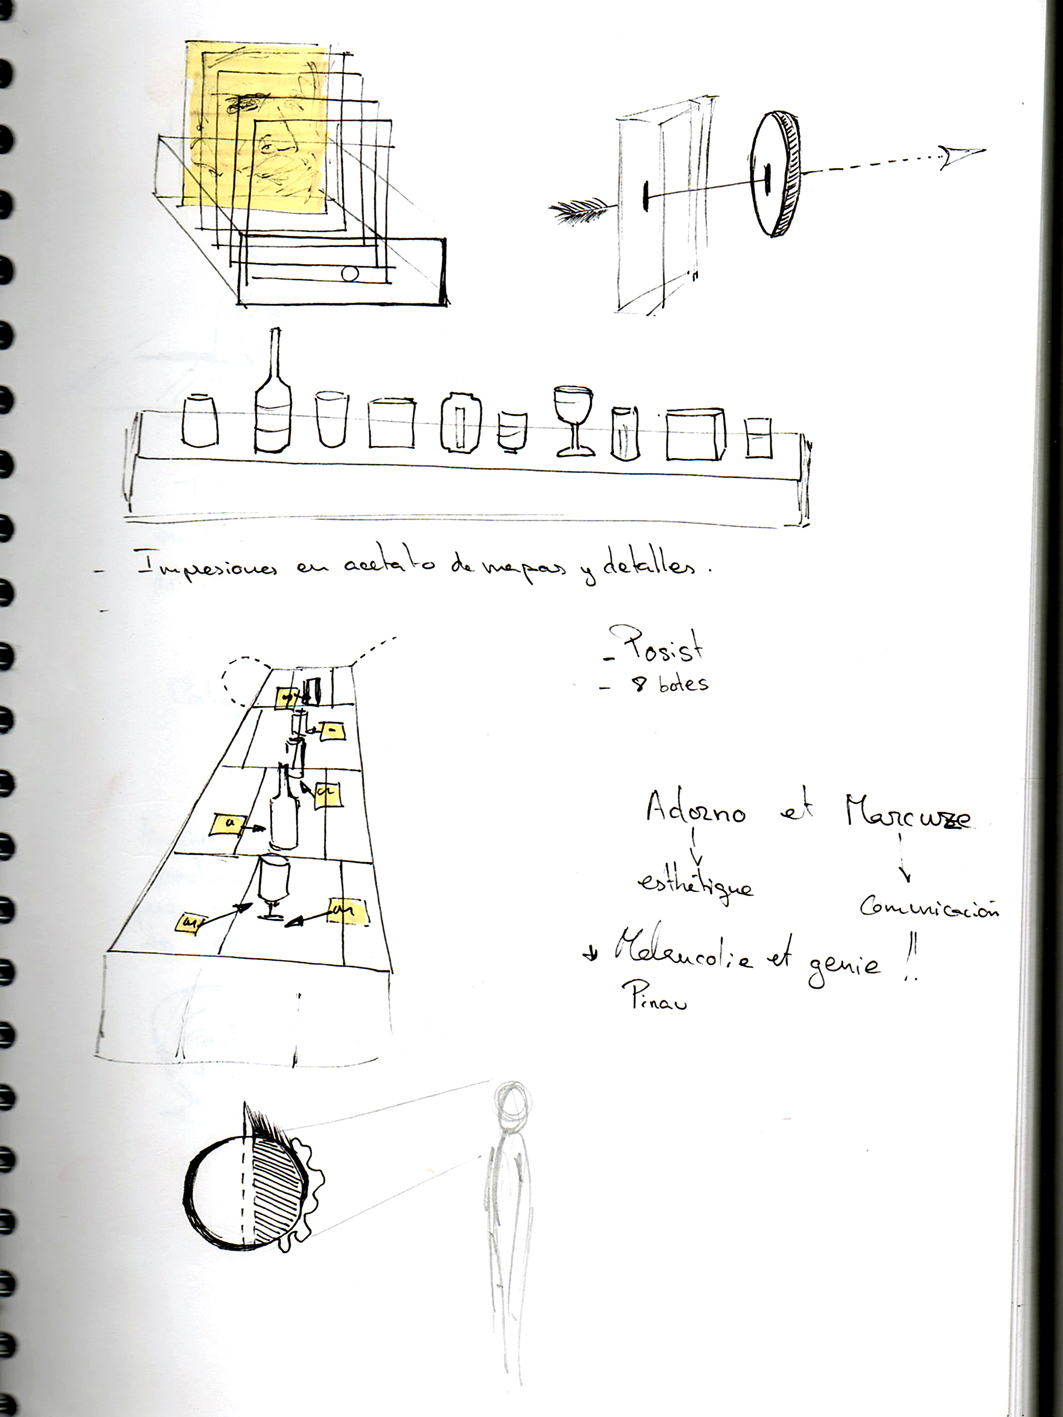 - Impresiones en acetato de mapas y detalles.
-
- Posist
- 8 botes
Adorno et Marcuze
esthétique
Comunicación
Melancolie et genie !!
Pinau